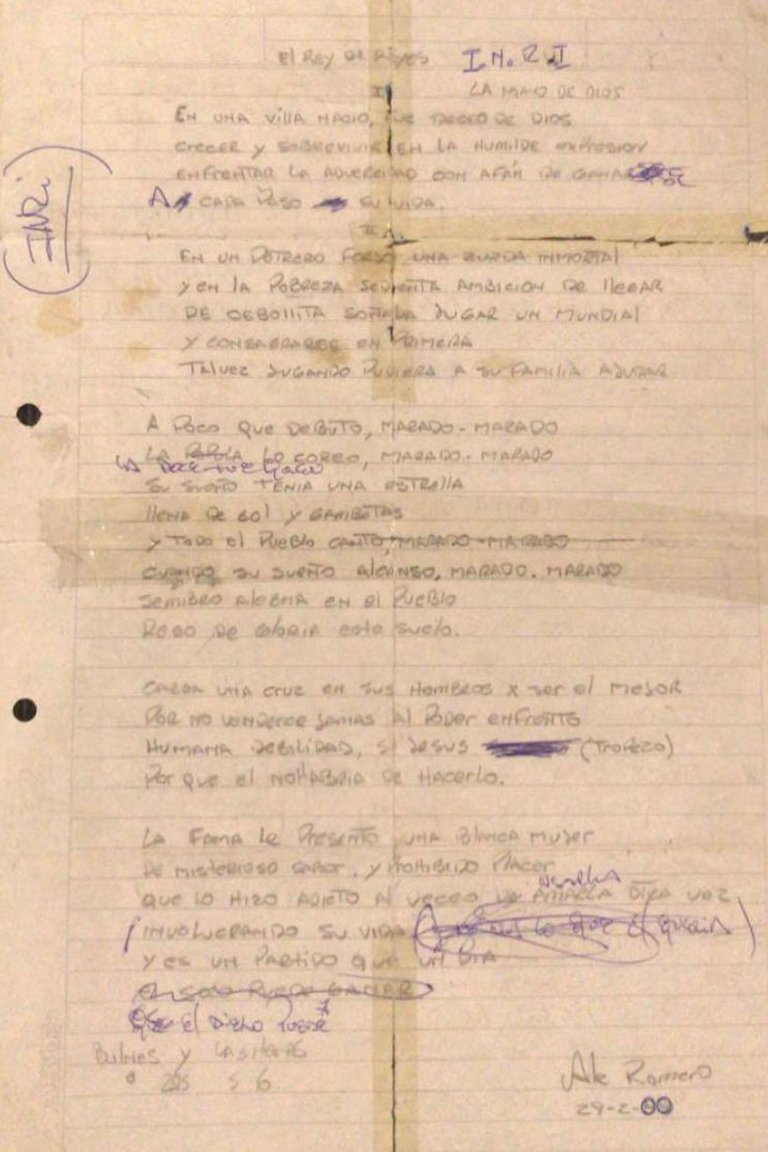 El Rey de Reyes I.N.R.I
LA MANO DE DIOS
INRI
EN UNA VILLA NACIO, FUE DECEO DE DIOS
CRECER Y SOBREVIVIR EN LA HUMILDE EXPRESION
ENFRENTAR LA ADVERSIDAD CON AFÁN DE
A CADA PASO SU VIDA.
EN UN POTRERO FORJO UNA ZURDA INMORTAL
Y EN LA POBREZA SEDIENTA AMBICION DE LLEGAR
DE CEBOLLITA SOÑABA JUGAR UN MUNDIAL
Y CONSAGRARCE EN PRIMERA
TALVEZ JUGANDO PUDIERA A SU FAMILIA AYUDAR
A POCO QUE DEBUTO, MARADO-MARADO
LA LO COREO, MARADO-MARADO
LA DOCE FUE QUIEN
SU SUEÑO TENIA UNA ESTRELLA
LLENA DE GOL Y GAMBETAS
Y TODO EL PUEBLO CANTO, MARADO-MARADO
CUANDO SU SUEÑO ALCANSO, MARADO. MARADO
SEMBRO ALEGRIA EN EL PUEBLO
REGO DE GLORIA ESTE SUELO.
CARGA UNA CRUZ EN SUS HOMBROS X SER EL MEJOR
POR NO VENDERCE JAMAS AL PODER ENFRENTO
HUMANA DEBILIDAD, SI JESUS (TROPEZO)
POR QUE EL NO HABRIA DE HACERLO.
LA FAMA LE PRESENTO UNA BLANCA MUJER
DE MISTERIOSO SABOR. Y PROHIBIDO PLACER
USARLA
QUE LO HIZO ADICTO AL DECEO DE AMARLA OTRA VEZ
INVOLUCRANDO SU VIDA
Y ES UN PARTIDO QUE UN DIA
EL SOLO PUEDE GANAR
El DIEGO
BULNES Y LAS HERAS
225 56
Ale Romero
29-2-00